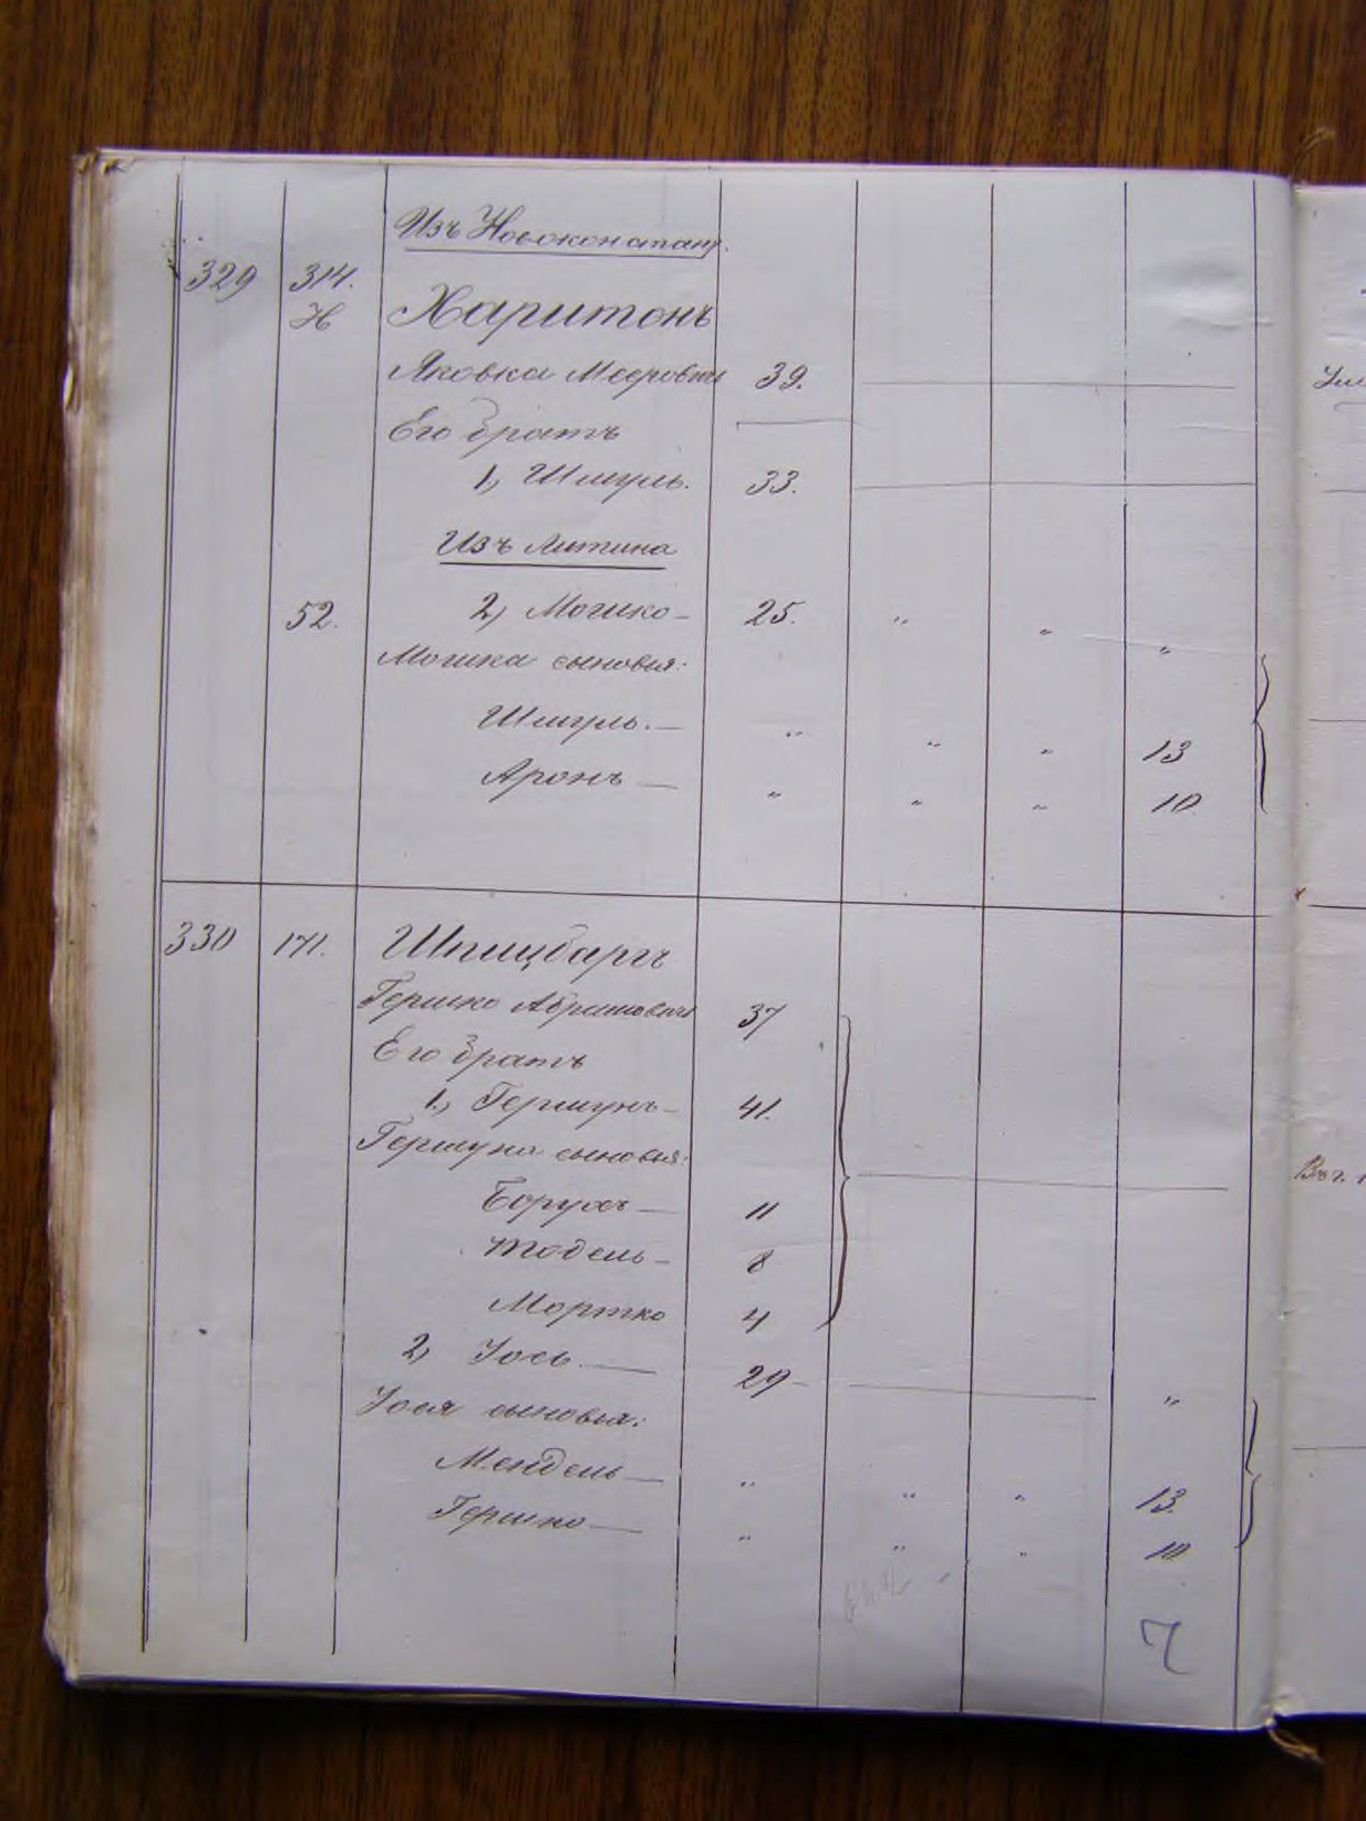 Изъ Новоконстант.
329 314. Харитонъ
Н
Яковка Мееровичъ 39.
Его братъ
1, Шмуль. 33.
Изъ Литина
52. 2, Мошко - 25. " " "
Мошка сыновья:
Шмуль. — " " " 13
Аронъ — " " " 10
330 171. Шпицбаргъ
Гершко Абрамовичъ 37
Его братъ
1, Гершунъ - 41.
Гершуна сыновья:
Борухъ — 11
Тодель - 8
Мортко 4
2, Іось. — 29 - "
Іося сыновья:
Мендель — " " " 13.
Гершко — " " " 10
7